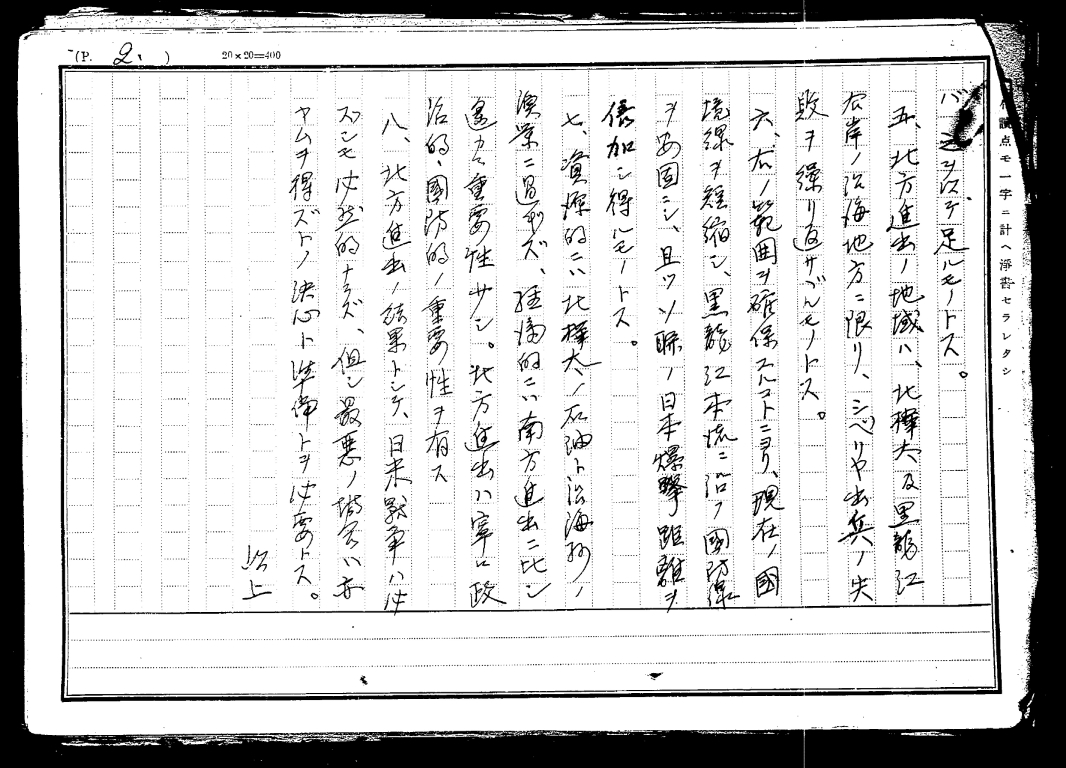 (P. 2. )
20×20=400
読点モ一字ニ計ヘ浄書セラレタシ
足ルモノトス。
五、北方進出ノ地域ハ、北樺太及黒龍江
右岸ノ沿海地方ニ限リ、シベリヤ出兵ノ失
敗ヲ繰リ返サザルモノトス。
六、右ノ範囲ヲ確保スルコトニヨリ、現在ノ國
境線ヲ短縮シ、黒龍江本流ニ沿フ國防線
ヲ安固ニシ、且ツソ聯ノ日本爆撃距離ヲ
倍加シ得ルモノトス。
七、資源的ニハ北樺太ノ石油ト沿海州ノ
漁業ニ過ギズ、経済的ニハ南方進出ニ比シ
遙カニ重要性少シ。北方進出ハ寧ロ政
治的、國防的ノ重要性ヲ有ス
八、北方進出ノ結果トシテ、日米戰争ハ必
ズシモ必然的ナラズ、但シ最悪ノ場合ハ亦
ヤムヲ得ズトノ決心ト準備トヲ必要トス。
以上